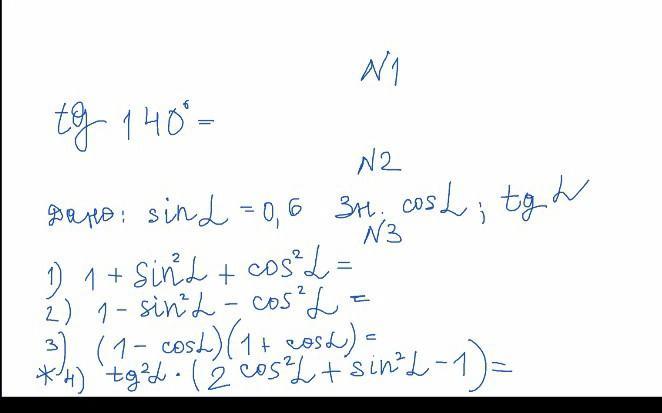 N1
tg 140° =
N2
Дано: sin α = 0,6 Зн. cos α; tg α
N3
1) 1 + sin²α + cos²α =
2) 1 - sin²α - cos²α =
3) (1 - cos α)(1 + cos α) =
*4) tg²α · (2 cos²α + sin²α - 1) =